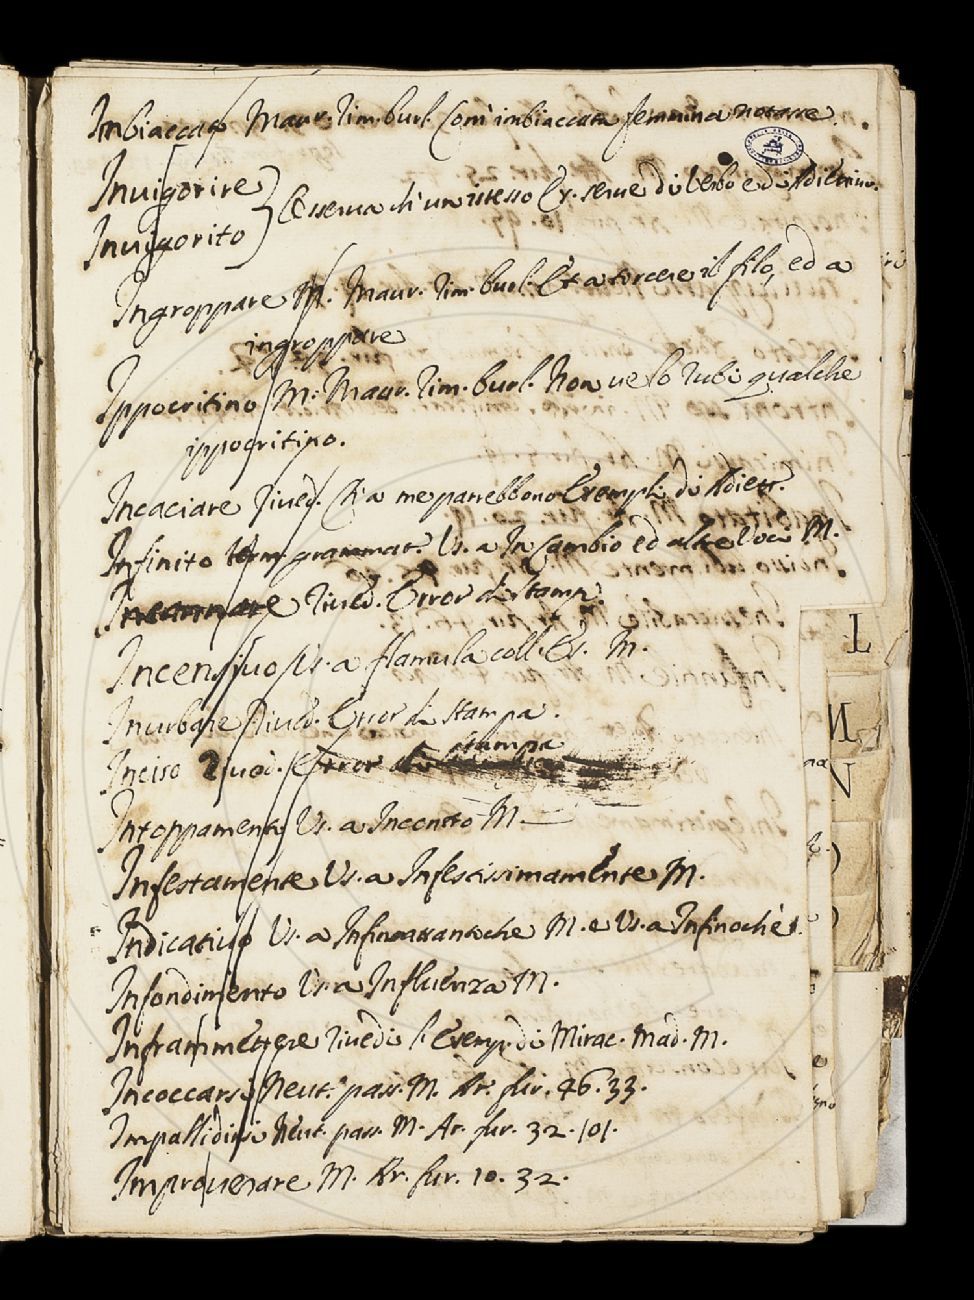 Imbiaccato Maur. Rim. burl. Com' imbiaccata femmina notasse.
Inuigorire
Inuigorito } Osserua ch'un istesso Es. serue di Verbo e di Adiettiuo.
Ingroppare M. Maur. Rim. burl. Et a torcere il filo, ed a
ingroppare
Ippocritino M. Maur. Rim. burl. Non ue lo rubi qualche
ippocritino.
Incaciare Riued. Ch'a me parrebbono Esempli di Adiett.
Infinito term. grammat. Us. a In Cambio ed altre Voci M.
Incarnare Riued. Error di stamp.
Incensiuo Us. a flamula coll. Es. M.
Inurbare Riued. Error di stampa.
Inciso Riued. Error di stampa
Intoppamento Us. a Incontro M.
Infestamente Us. a Infestissimamente M.
Indicatiuo Us. a Infinattantoche M. e Us. a Infinochè.
Infondimento Us. a Influenza M.
Inframmettere Riuedi l'Esemp. di Mirac. Mad. M.
Incoccarsi Neut. pass. M. Ar. fur. 46. 33.
Impallidirsi Neut. pass. M. Ar. fur. 32. 101.
Improuerare M. Ar. fur. 10. 32.